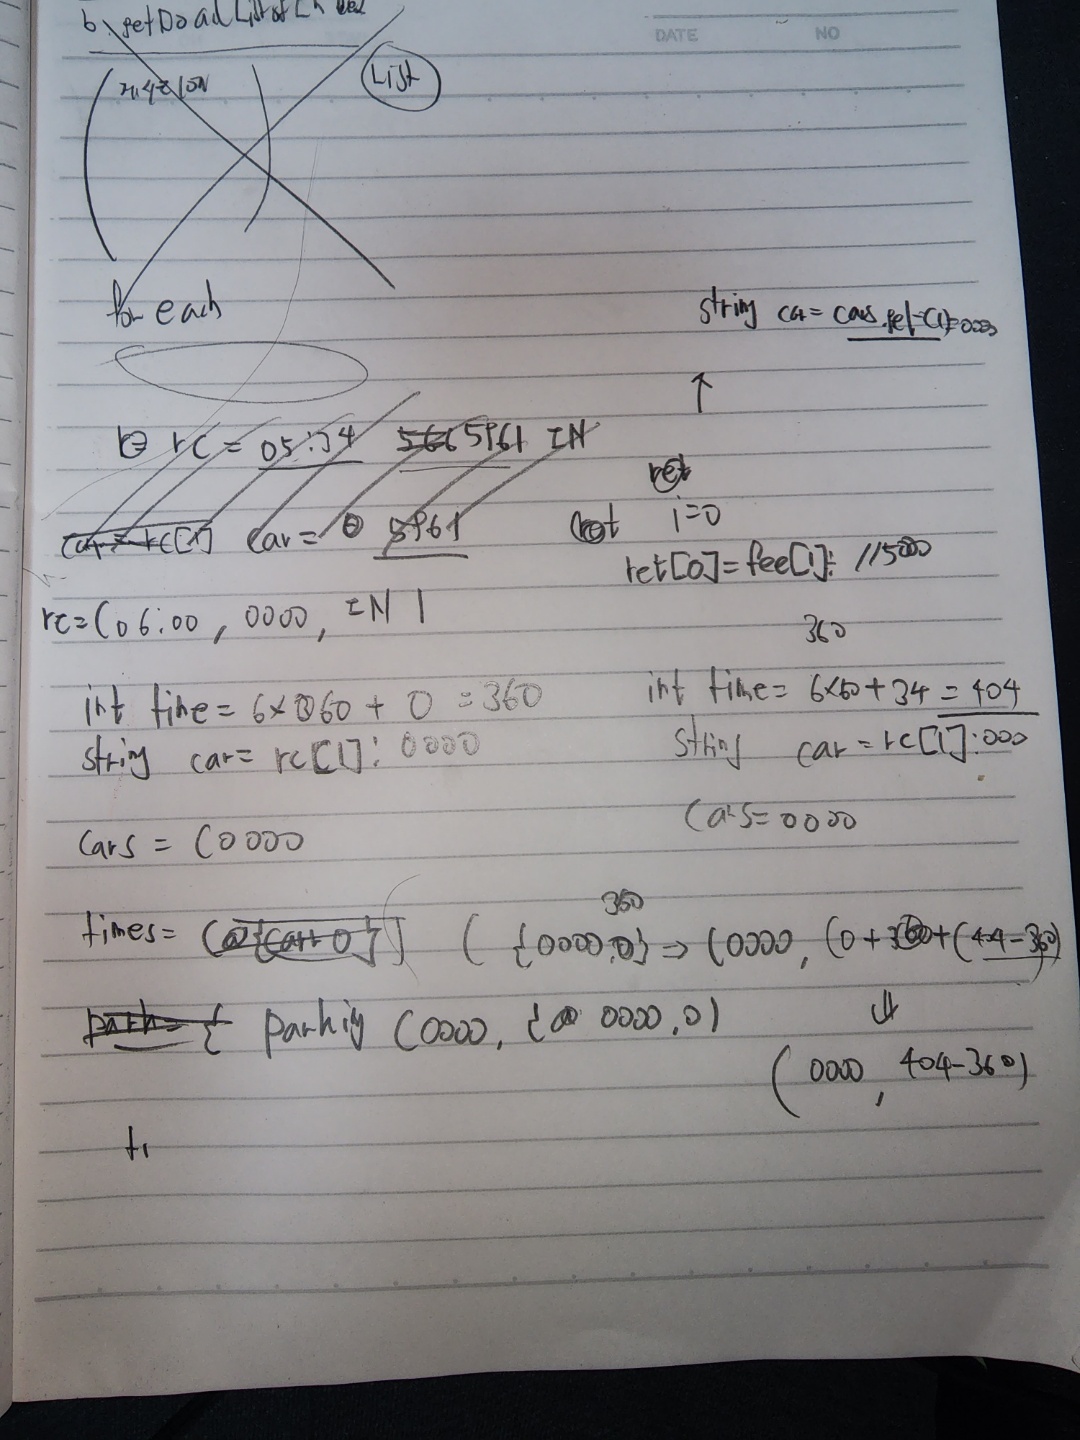 DATE NO
List
for each
string car = cars.get
↑
rc = 05:34 5961 IN
ret
car = 5961
i=0
ret[0] = fee[1]: 115000
rc = (06:00, 0000, IN)
360
int time = 6x60 + 0 = 360
int time = 6x60 + 34 = 404
string car = rc[1]: 0000
string car = rc[1]: 000
cars = (0000
Cars = 0000
360
times = ( {0000,0} ⇒ (0000, (0+360+(404-360)
parkig (0000, { 0000,0)
⇓
(0000, 404-360)
ti